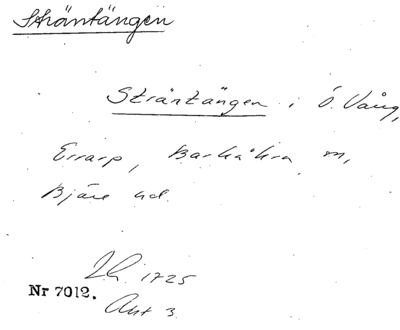 Sträntängen
Sträntängen i Ö. Vång,
Errarp, Barkåkra, m,
Bjäre hd.
Lh. 1725
Nr 7012.
Akt 3.